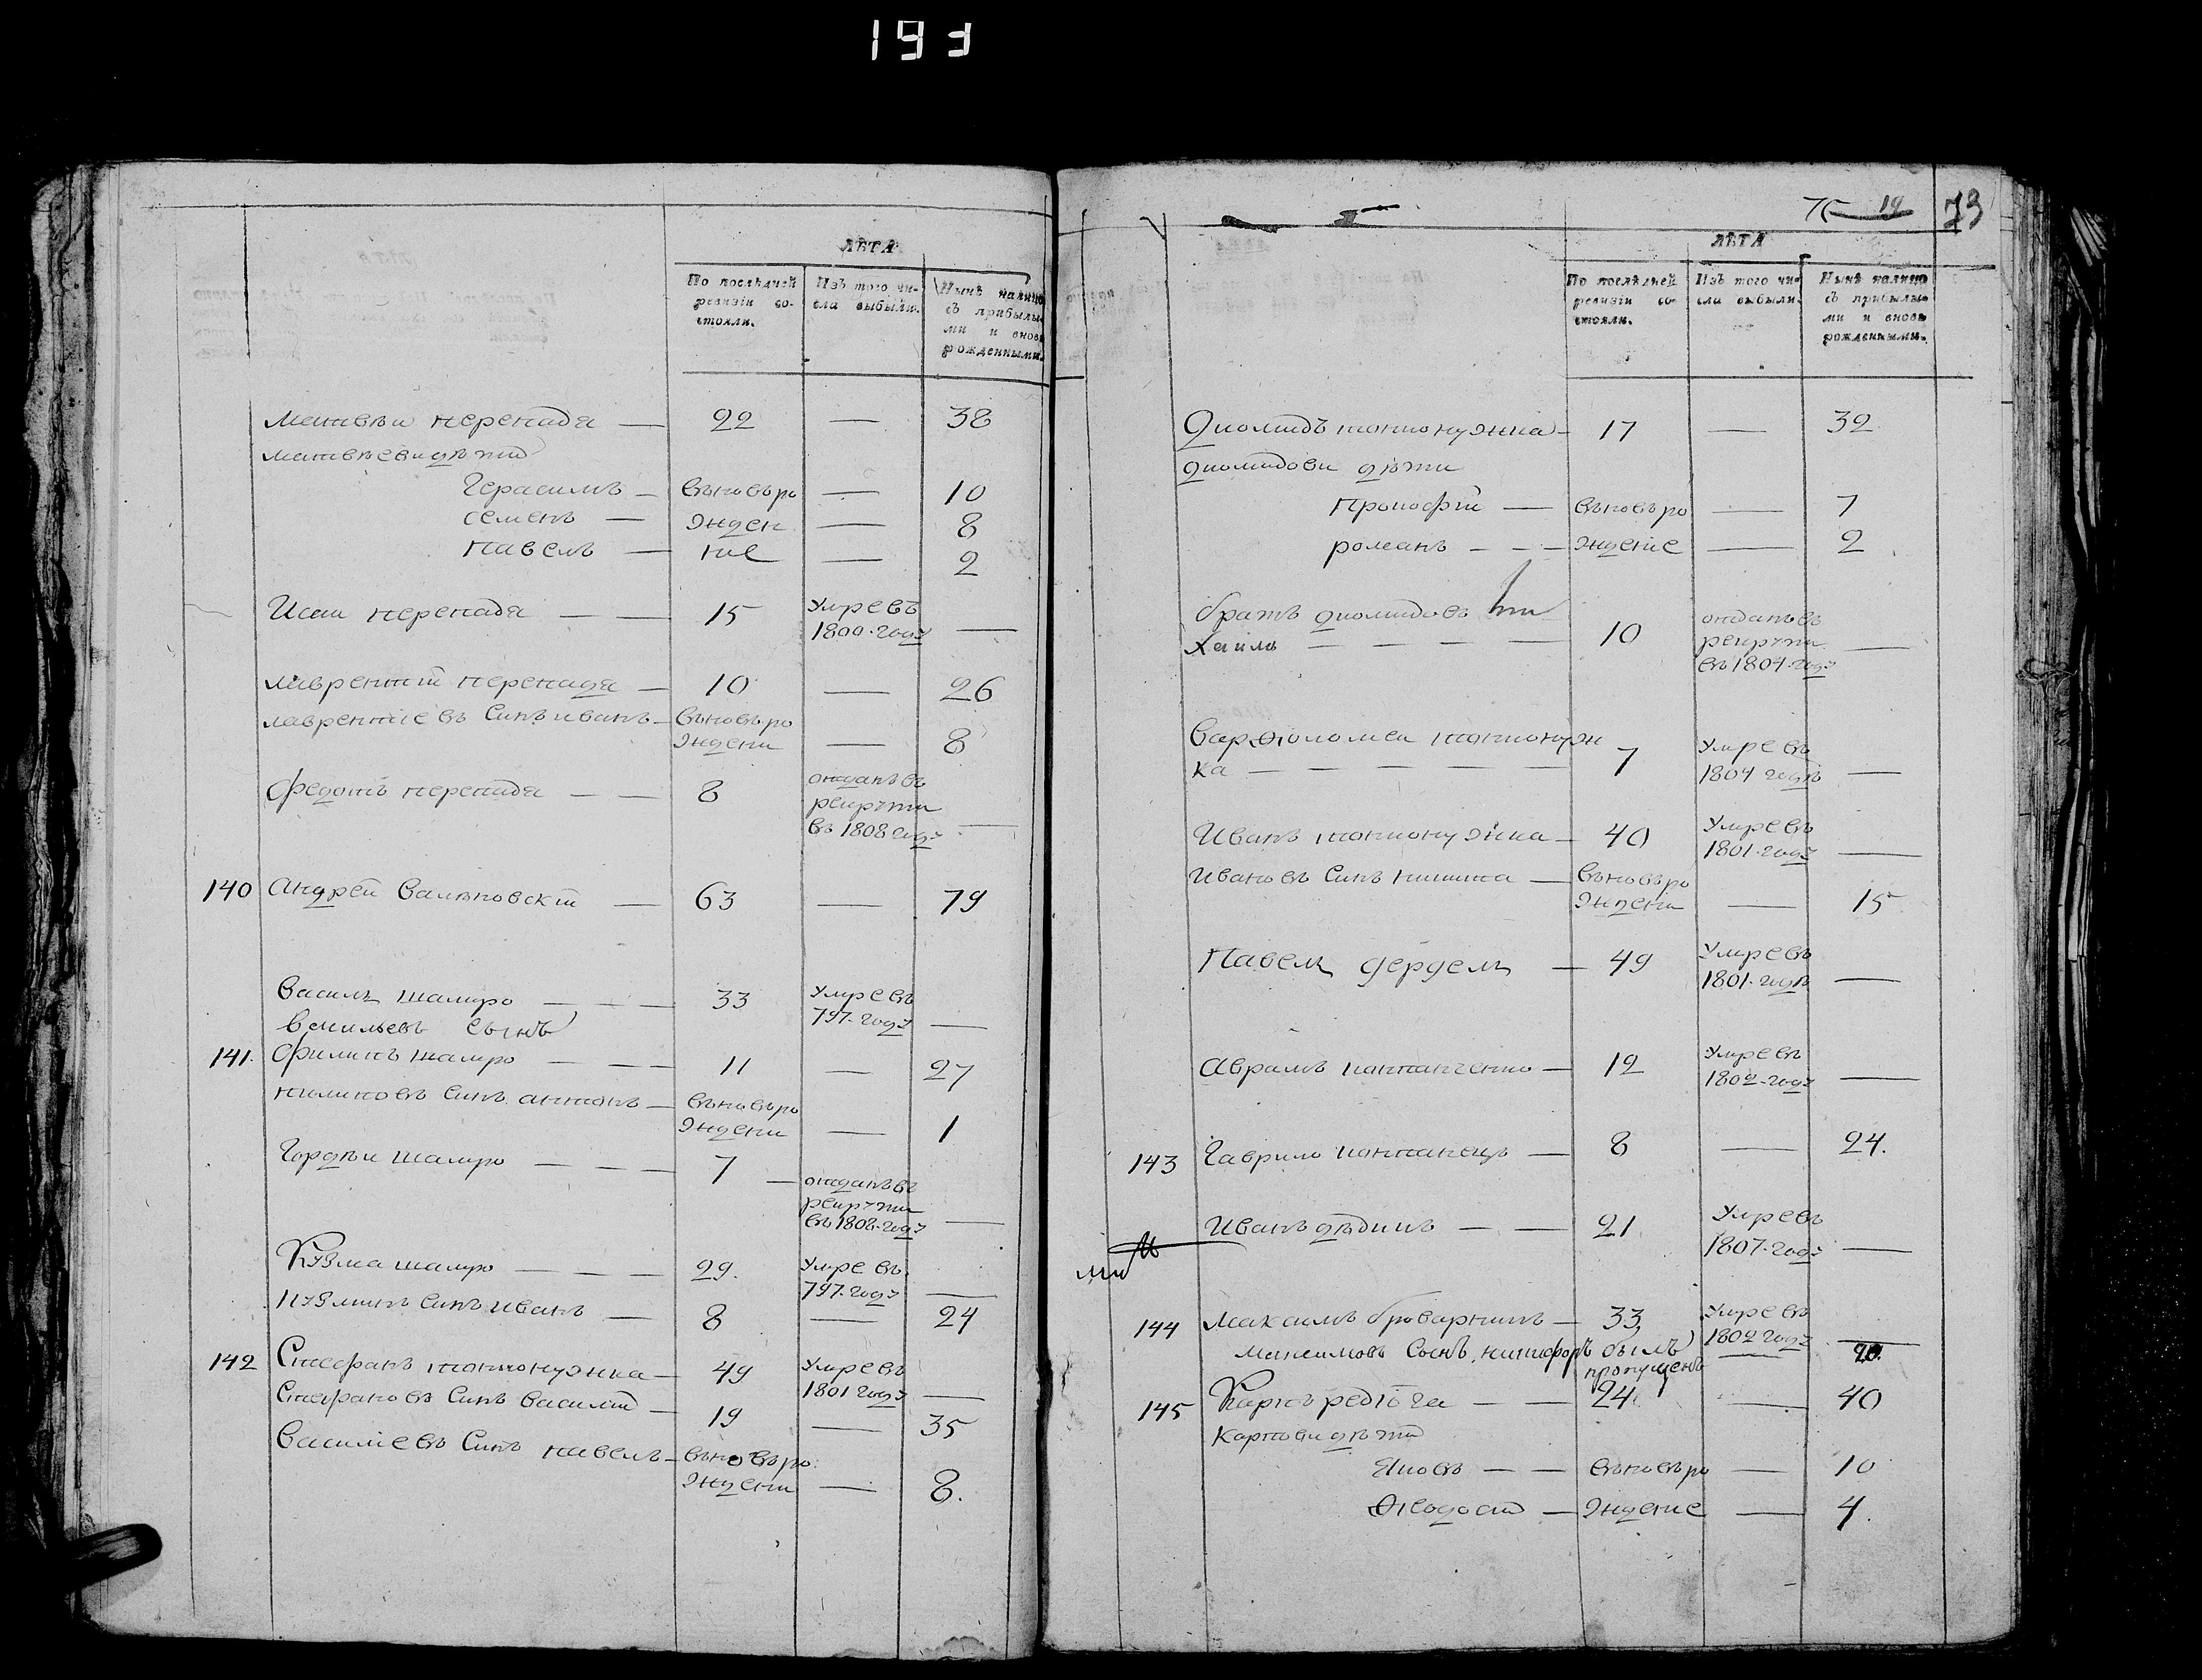 193
ЛѢТА
По послѣдней ревизіи состояли.
Изъ того числа выбыли.
Нынѣ налицо съ прибылыми и вновь рожденными.
Матвѣи перепада — 22 — 38
матвѣеви дѣти
Герасимъ — вновьро — 10
семенъ — жден — 8
павелъ — ние — 2
Исаи перепада — 15 Умре въ
1800 году —
лаврентіи перепада — 10 — 26
лаврентіевъ Синъ иванъ — вновьро
ждени — 8
федотъ перепада — 8 отданъ въ
рекрути
въ 1808 году —
140 Андрей — 63 — 79
Василь шамро — 33 Умре въ
797 году —
Васильевъ сынъ
141. филипъ шамро — 11 — 27
пилиповъ Синъ антонъ — вновьро
ждени — 1
Гордѣи шамро — 7 — отданъ въ
рекрути
въ 1808 году —
Кузма шамро — 29. Умре въ
797 году —
кузминъ Синъ иванъ — 8 — 24
142 Стефанъ — 49 Умре въ
1801 году —
Стефановъ Синъ василій — 19 — 35
Василіевъ Синъ павелъ — вновьро
ждени — 8.
75 19 73
ЛѢТА
По послѣдней ревизіи состояли.
Изъ того числа выбыли.
Нынѣ налицо съ прибылыми и вновь рожденными.
Диомидъ — 17 — 32
диомидови дѣти
Прокофій — вновьро — 7
романъ — ждение — 2
братъ диомидовъ ми
хаило — 10 отданъ въ
рекрути
въ 1804 году —
Варѳоломеи
ка — 7 Умре въ
1804 годѣ —
Иванъ — 40 Умре въ
1801 году —
Ивановъ Синъ никита — вновьро
ждени — 15
Павелъ дердель — 49 Умре въ
1801 годѣ —
Аврамъ — 12 Умре въ
1802 году —
143 Гаврило — 8 — 24.
Иванъ дѣдикъ — 21 Умре въ
1807 году —
144 Максимъ броварникъ — 33 Умре въ
1802 году —
максимовъ Сынъ никифоръ былъ
пропущенъ — 20.
145 Карпъ редъга — 24 — 40
Карпови дѣти
Яковъ — вновьро — 10
Ѳеодосій — ждение — 4.